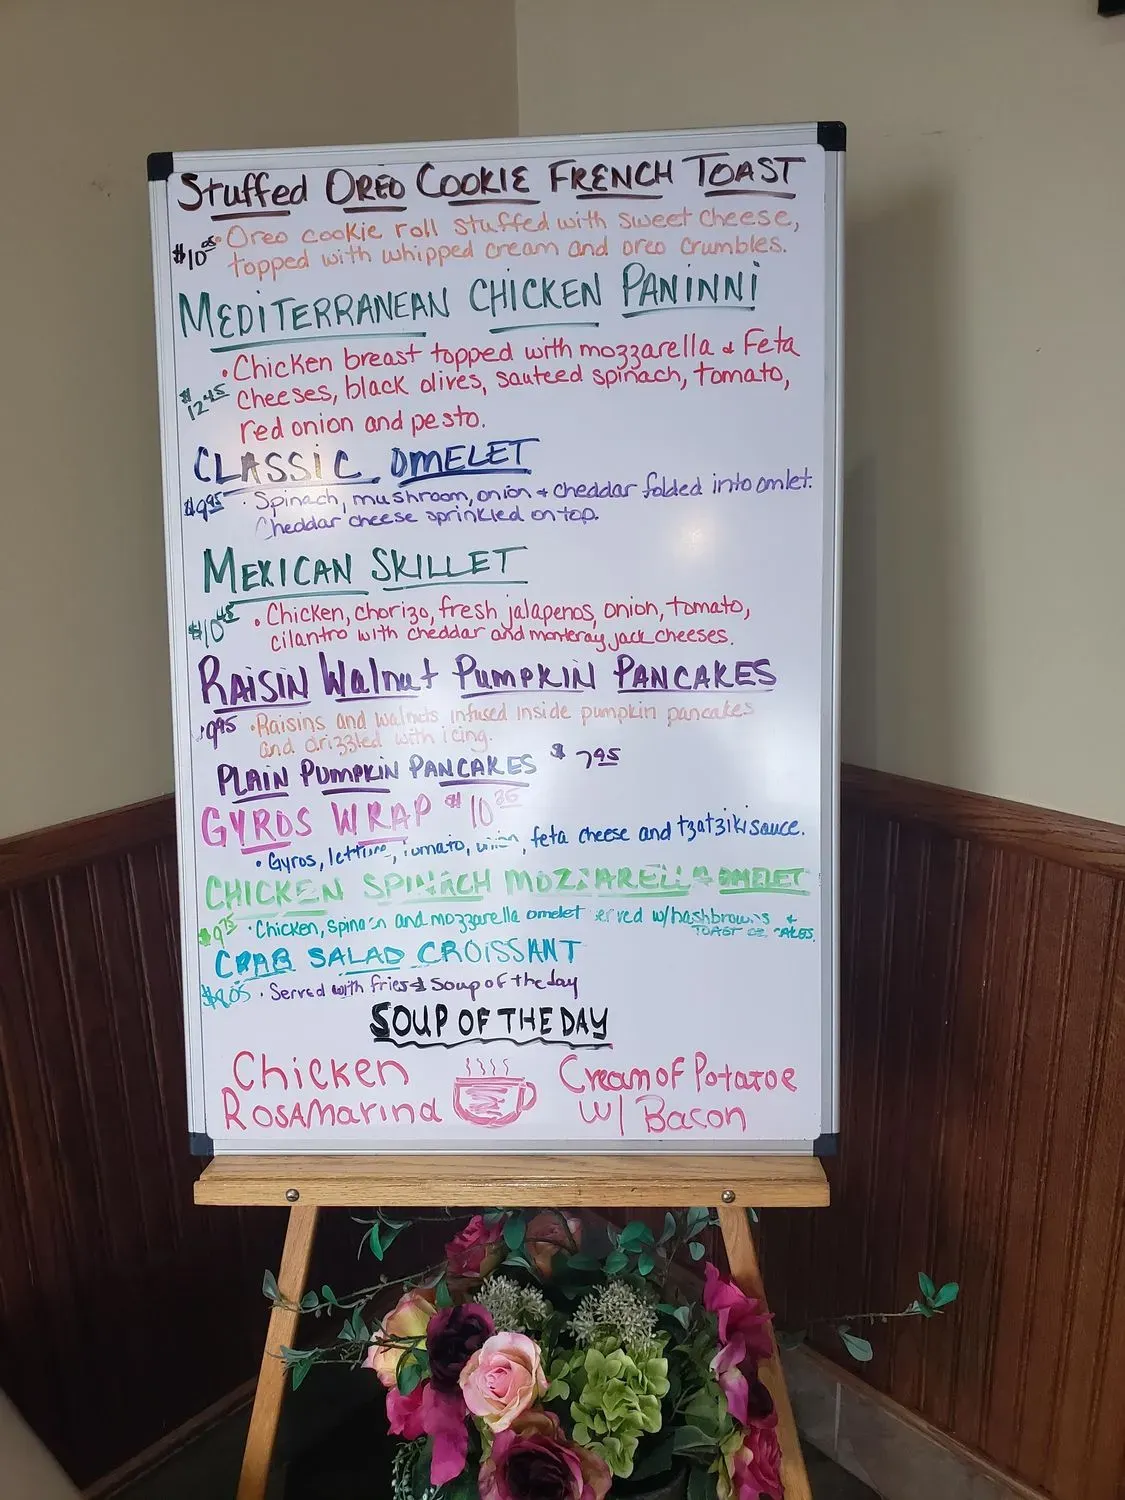 Stuffed OREO COOKIE FRENCH TOAST
$10.05 • Oreo cookie roll stuffed with sweet cheese,
topped with whipped cream and oreo crumbles.
MEDITERRANEAN CHICKEN PANINNi
• Chicken breast topped with mozzarella & Feta
$12.45 cheeses, black olives, sauteed spinach, tomato,
red onion and pesto.
CLASSiC OMELET
$9.95 • Spinach, mushroom, onion + cheddar folded into omlet.
Cheddar cheese sprinkled on top.
MEXICAN SKILLET
$10.45 • Chicken, chorizo, fresh jalapenos, onion, tomato,
cilantro with cheddar and monteray jack cheeses.
RAISIN Walnut PUMPKIN PANCAKES
9.95 • Raisins and walnuts infused inside pumpkin pancakes
and drizzled with icing.
PLAIN PUMPKIN PANCAKES $7.95
GYROS WRAP $10
• Gyros, lettuce, tomato, onion, feta cheese and tzatziki sauce.
CHICKEN SPINACH MOZZARELLA OMELET
$9.75 • Chicken, spinach and mozzarella omelet served w/hashbrowns &
TOAST or CAKES.
CRAB SALAD CROISSANT
• Served with fries & soup of the day
SOUP OF THE DAY
Chicken Cream of Potatoe
RosAMarina w/ Bacon